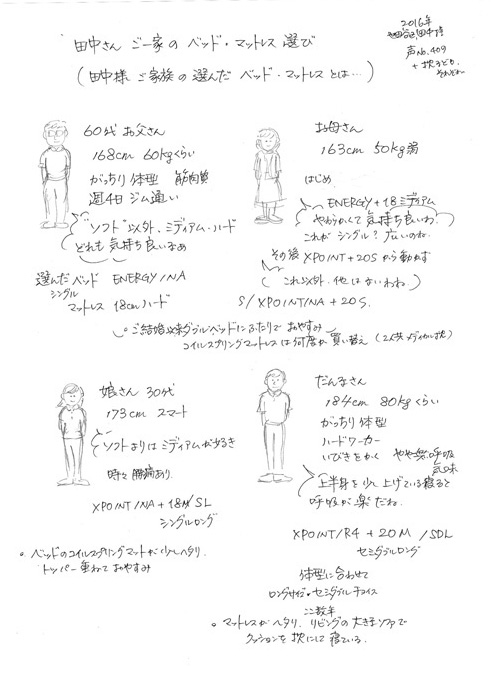 田中さん ご一家の ベッド・マットレス選び
(田中様 ご家族の選んだ ベッド・マットレスとは…)
2016年
声No.409
60代 お父さん
168cm 60kgくらい
がっちり体型 筋肉質
週4日 ジム通い
"ソフト"以外、ミディアム・ハード
どれも気持ち良いなぁ
選んだベッド ENERGY/NA
シングル
マットレス 18cmハード
お母さん
163cm 50kg弱
はじめ
ENERGY+18ミディアム
やわらかくて気持ち良いわ。
これがシングル?広いのね。
その後 XPOINT+20Sから動かず
(これ以外、他はないわね。)
S/XPOINT/NA+20S.
○ご結婚以来ダブルベッドにふたりでおやすみ
コイルスプリングマットレスは何度か買い替え (2人共メディカル枕)
娘さん 30代
173cm スマート
ソフトよりはミディアムが好き
時々腰痛あり.
XPOINT/NA+18M/SL
シングルロング
○ベッドのコイルスプリングマットが少しヘタリ.
トッパー重ねておやすみ
だんなさん
184cm 80kgくらい
がっちり体型
ハードワーカー
いびきをかく やや無呼吸
気味
上半身を少し上げている寝ると
呼吸が楽だね。
XPOINT/R4+20M/SDL
セミダブルロング
体型に合わせて
ロングサイズ・セミダブルチョイス
ここ数年
○マットレスがヘタリ、リビングの大きなソファで
クッションを枕にして寝ている.